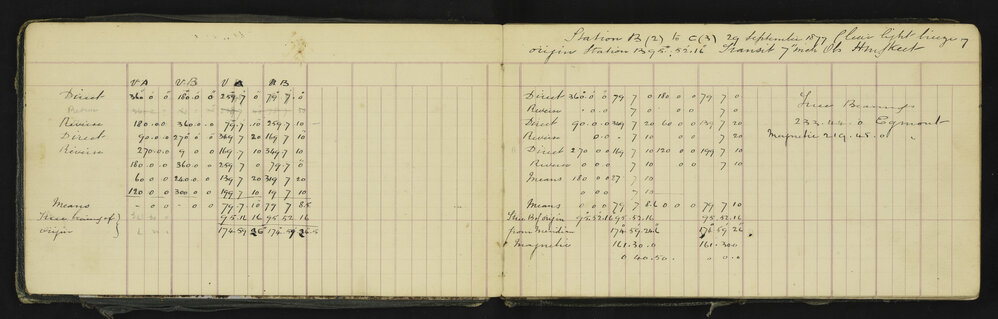 V A V B V A V B
Direct 360 0 0 180 0 0 259 7 0 79 7 0
Reverse 180 0 0 360 0 0 79 7 10 259 7 10
Direct 90 0 0 270 0 0 349 7 20 169 7 10
Reverse 270 0 0 9 0 0 169 7 10 349 7 10
180 0 0 360 0 0 259 7 0 79 7 0
60 0 0 240 0 0 139 7 20 319 7 20
120 0 0 300 0 0 199 7 10 19 7 10
Means - 0 0 - 0 0 79 7 10 79 7 8.5
True bearing of 95 16 16 95 52 16
origin 174 59 26 174 59 26.5
Station B (2) to C (3) 29 September 1877 Clear light breeze
origin Station B 95° 52' 16 Transit 7" inch Ob Hm Skeet
Direct 360 0 0 79 7 0 180 0 0 79 7 0
Reverse 0 0 7 0 0 0 7 10
Direct 90 0 0 349 7 20 60 0 0 139 7 20
Reverse 0 0 7 10 0 0 7 20
Direct 270 0 0 169 7 10 120 0 0 199 7 10
Reverse 0 0 0 7 10 0 0 7 10
Means 180 0 0 7 10
0 0 0 7 10
Means 0 0 0 79 7 8.6 0 0 79 7 10
True B of origin 95.52.16 95.52.16 95.52.16
from Meridian 174.59.24.6 174.59.26
Magnetic 161.30.0 161.30 0
0 40.50. 0 0 0
True Bearings
233.44.0 Egmont
Magnetic 219.45.0 "